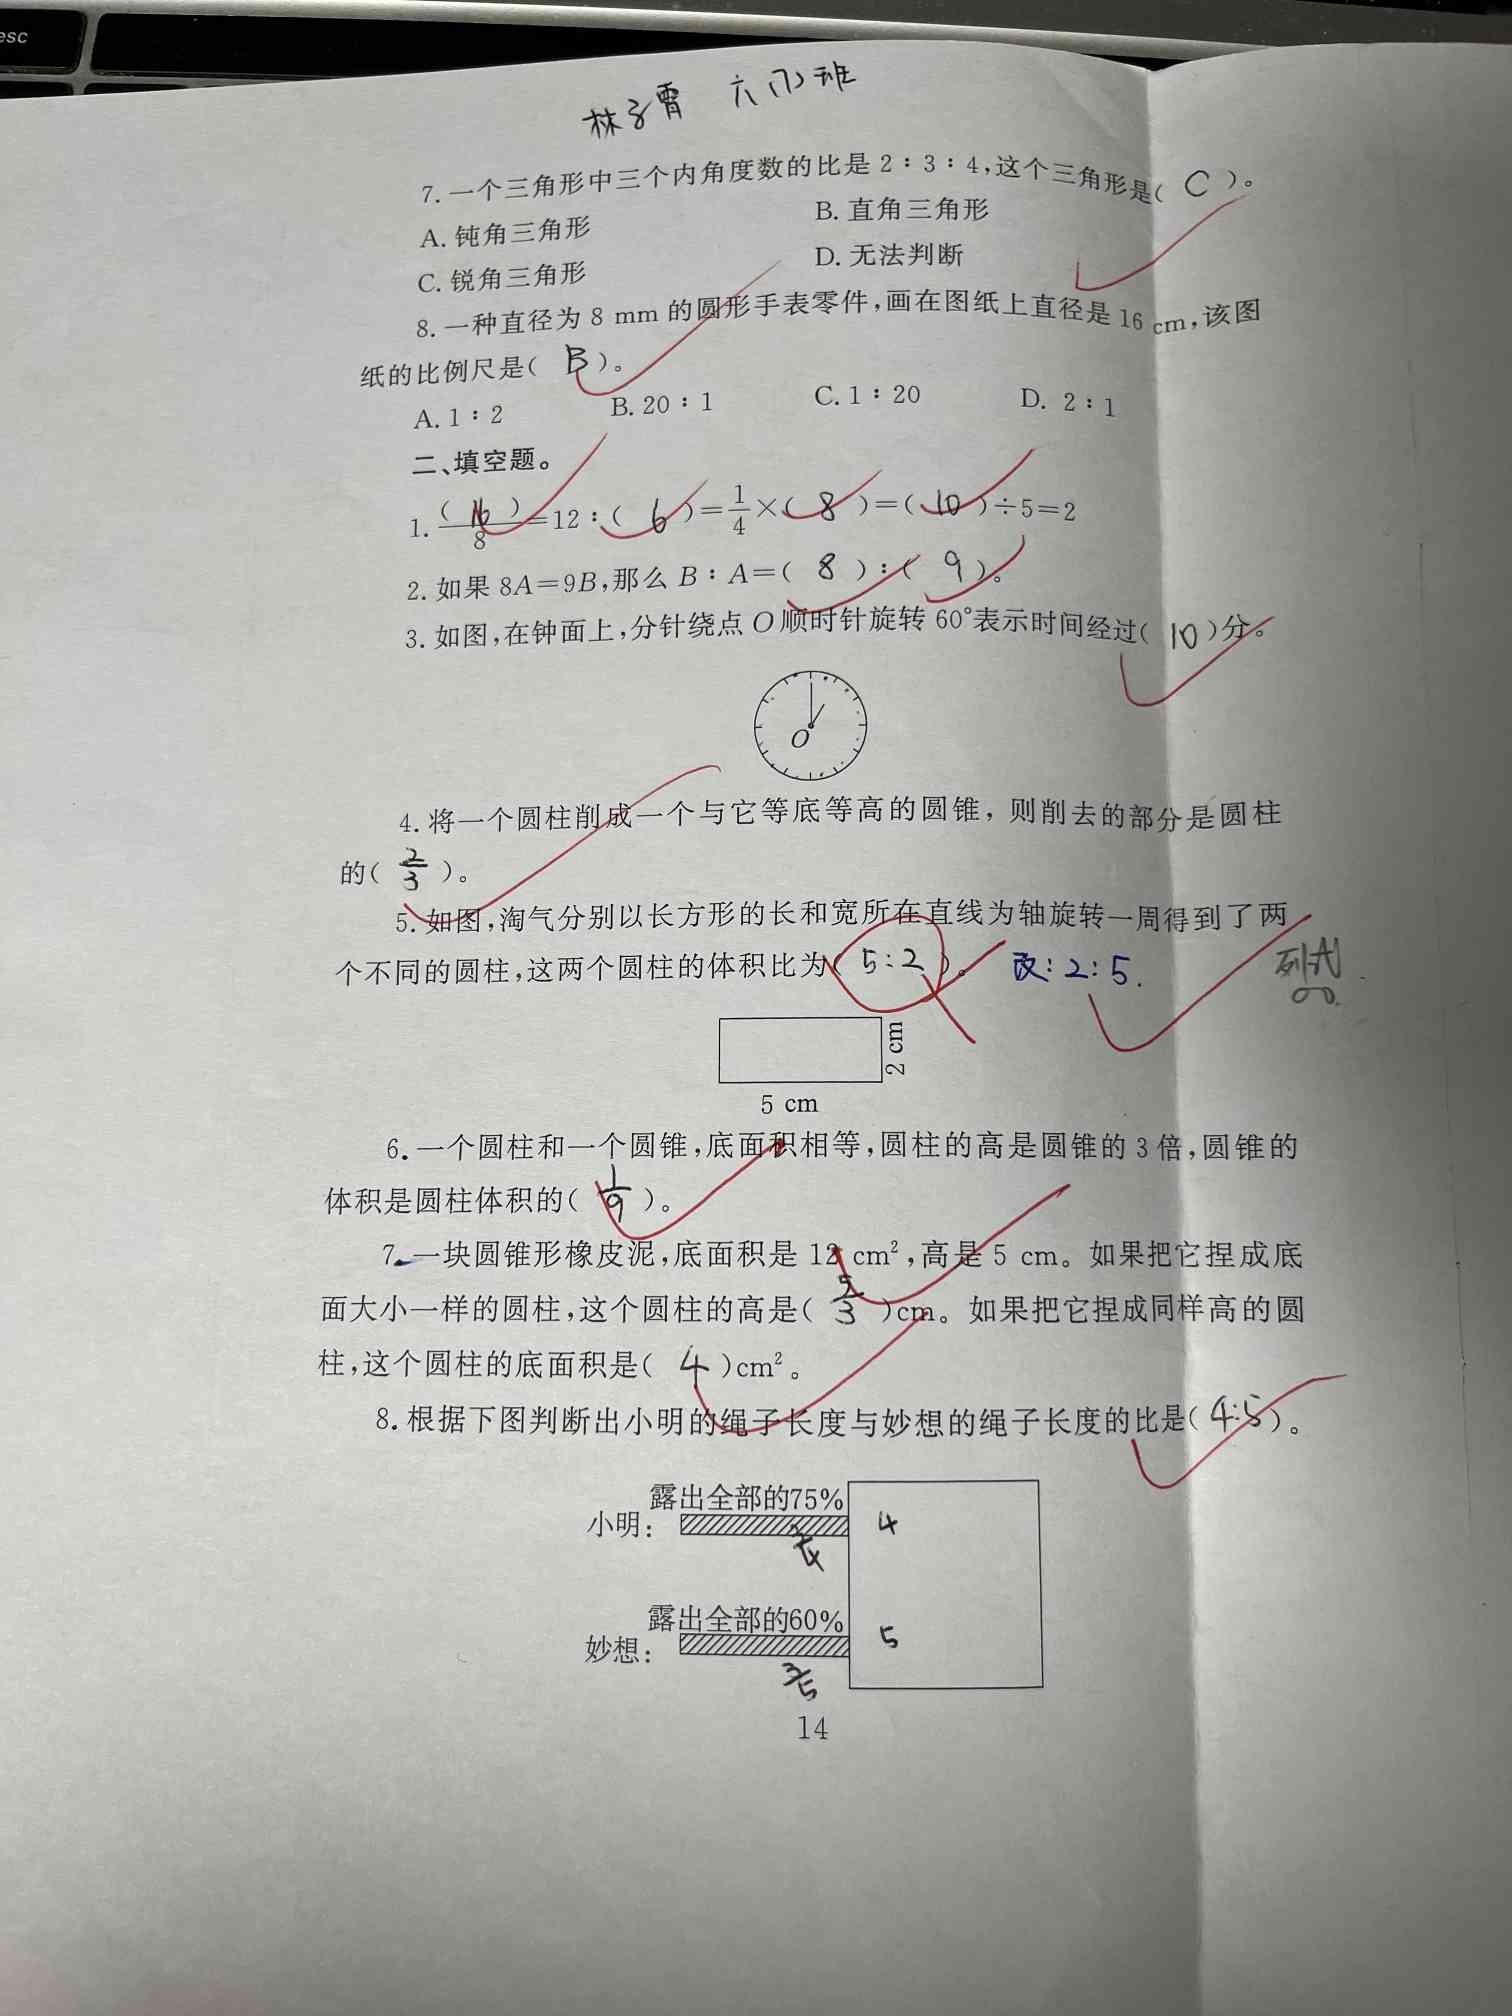 esc
林子霄 六(7)班
7.一个三角形中三个内角度数的比是2∶3∶4,这个三角形是( C )。
A.钝角三角形 B.直角三角形
C.锐角三角形 D.无法判断
8.一种直径为8 mm的圆形手表零件,画在图纸上直径是16 cm,该图
纸的比例尺是( B )。
A.1∶2 B.20∶1 C.1∶20 D. 2∶1
二、填空题。
1.(16)/8=12∶( 6 )=1/4×( 8 )=( 10 )÷5=2
2.如果8A=9B,那么B∶A=( 8 )∶( 9 )。
3.如图,在钟面上,分针绕点O顺时针旋转60°表示时间经过( 10 )分。
O
4.将一个圆柱削成一个与它等底等高的圆锥,则削去的部分是圆柱
的( 2/3 )。
5.如图,淘气分别以长方形的长和宽所在直线为轴旋转一周得到了两
个不同的圆柱,这两个圆柱的体积比为( 5:2 )。 改:2:5. 列式
2 cm
5 cm
6.一个圆柱和一个圆锥,底面积相等,圆柱的高是圆锥的3倍,圆锥的
体积是圆柱体积的( 1/9 )。
7.一块圆锥形橡皮泥,底面积是12 cm²,高是5 cm。如果把它捏成底
面大小一样的圆柱,这个圆柱的高是( 5/3 )cm。如果把它捏成同样高的圆
柱,这个圆柱的底面积是( 4 )cm²。
8.根据下图判断出小明的绳子长度与妙想的绳子长度的比是( 4:5 )。
露出全部的75%
小明: 4
3/4
露出全部的60%
妙想: 5
3/5
14